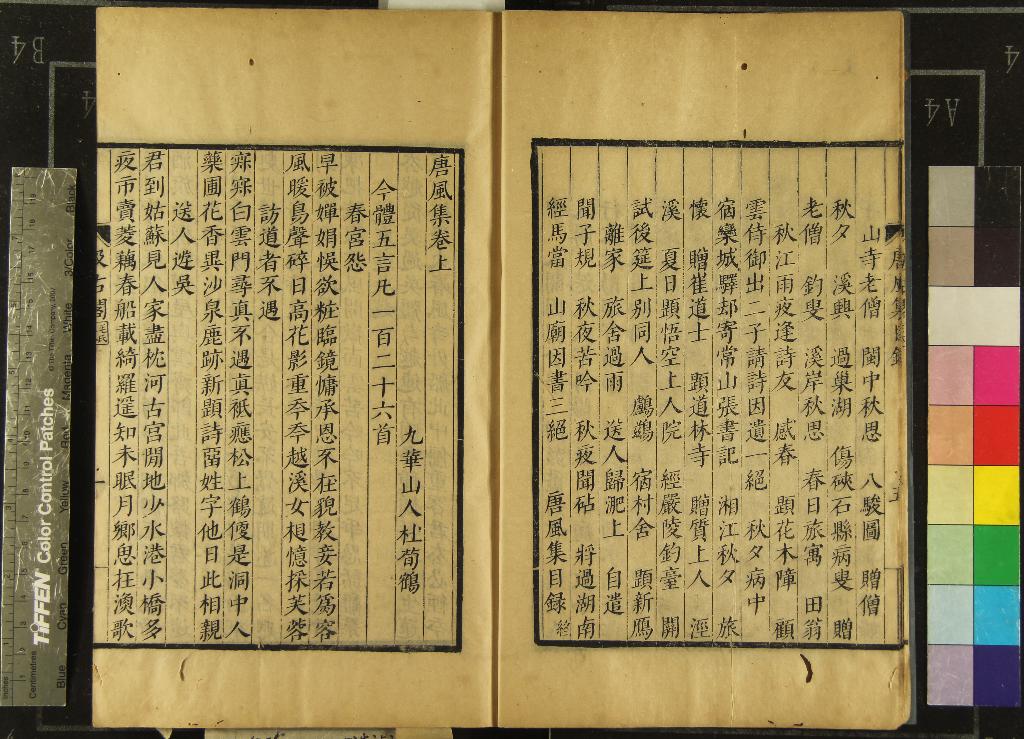 山寺老僧 閩中秋思 八駿圖 贈僧
秋夕 溪興 過巢湖 傷硤石縣病叟 贈
老僧 釣叟 溪岸秋思 春日旅寓 田翁
秋江雨夜逢詩友 感春 題花木障 顧
雲侍御出二子請詩因遺一絕 秋夕病中
宿欒城驛却寄常山張書記 湘江秋夕 旅
懷 贈崔道士 題道林寺 贈質上人 涇
溪 夏日題悟空上人院 經嚴陵釣臺 閒
試後筵上別同人 鸂鶒 宿村舍 題新鴈
離家 旅舍過雨 送人歸淝上 自遣
聞子規 秋夜苦吟 秋夜聞砧 將過湖南
經馬當 山廟因書三絕 唐風集目録 終
唐風集卷上
九華山人杜荀鶴
今體五言凡一百二十六首
春宮怨
早被嬋娟悞欲粧臨鏡慵承恩不在貌教妾若爲容
風暖鳥聲碎日高花影重年年越溪女相憶採芙蓉
訪道者不遇
寂寂白雲門尋真不遇真祇應松上鶴便是洞中人
藥圃花香異沙泉鹿跡新題詩畱姓字他日此相親
送人遊吳
君到姑蘇見人家盡枕河古宮閒地少水港小橋多
夜市賣菱藕春船載綺羅遥知未眠月鄉思在漁歌
汲古閣
TIFFEN Color Control Patches
Blue Cyan Green Yellow Red Magenta White 3/Color Black
Centimetres
Inches
B4
A4